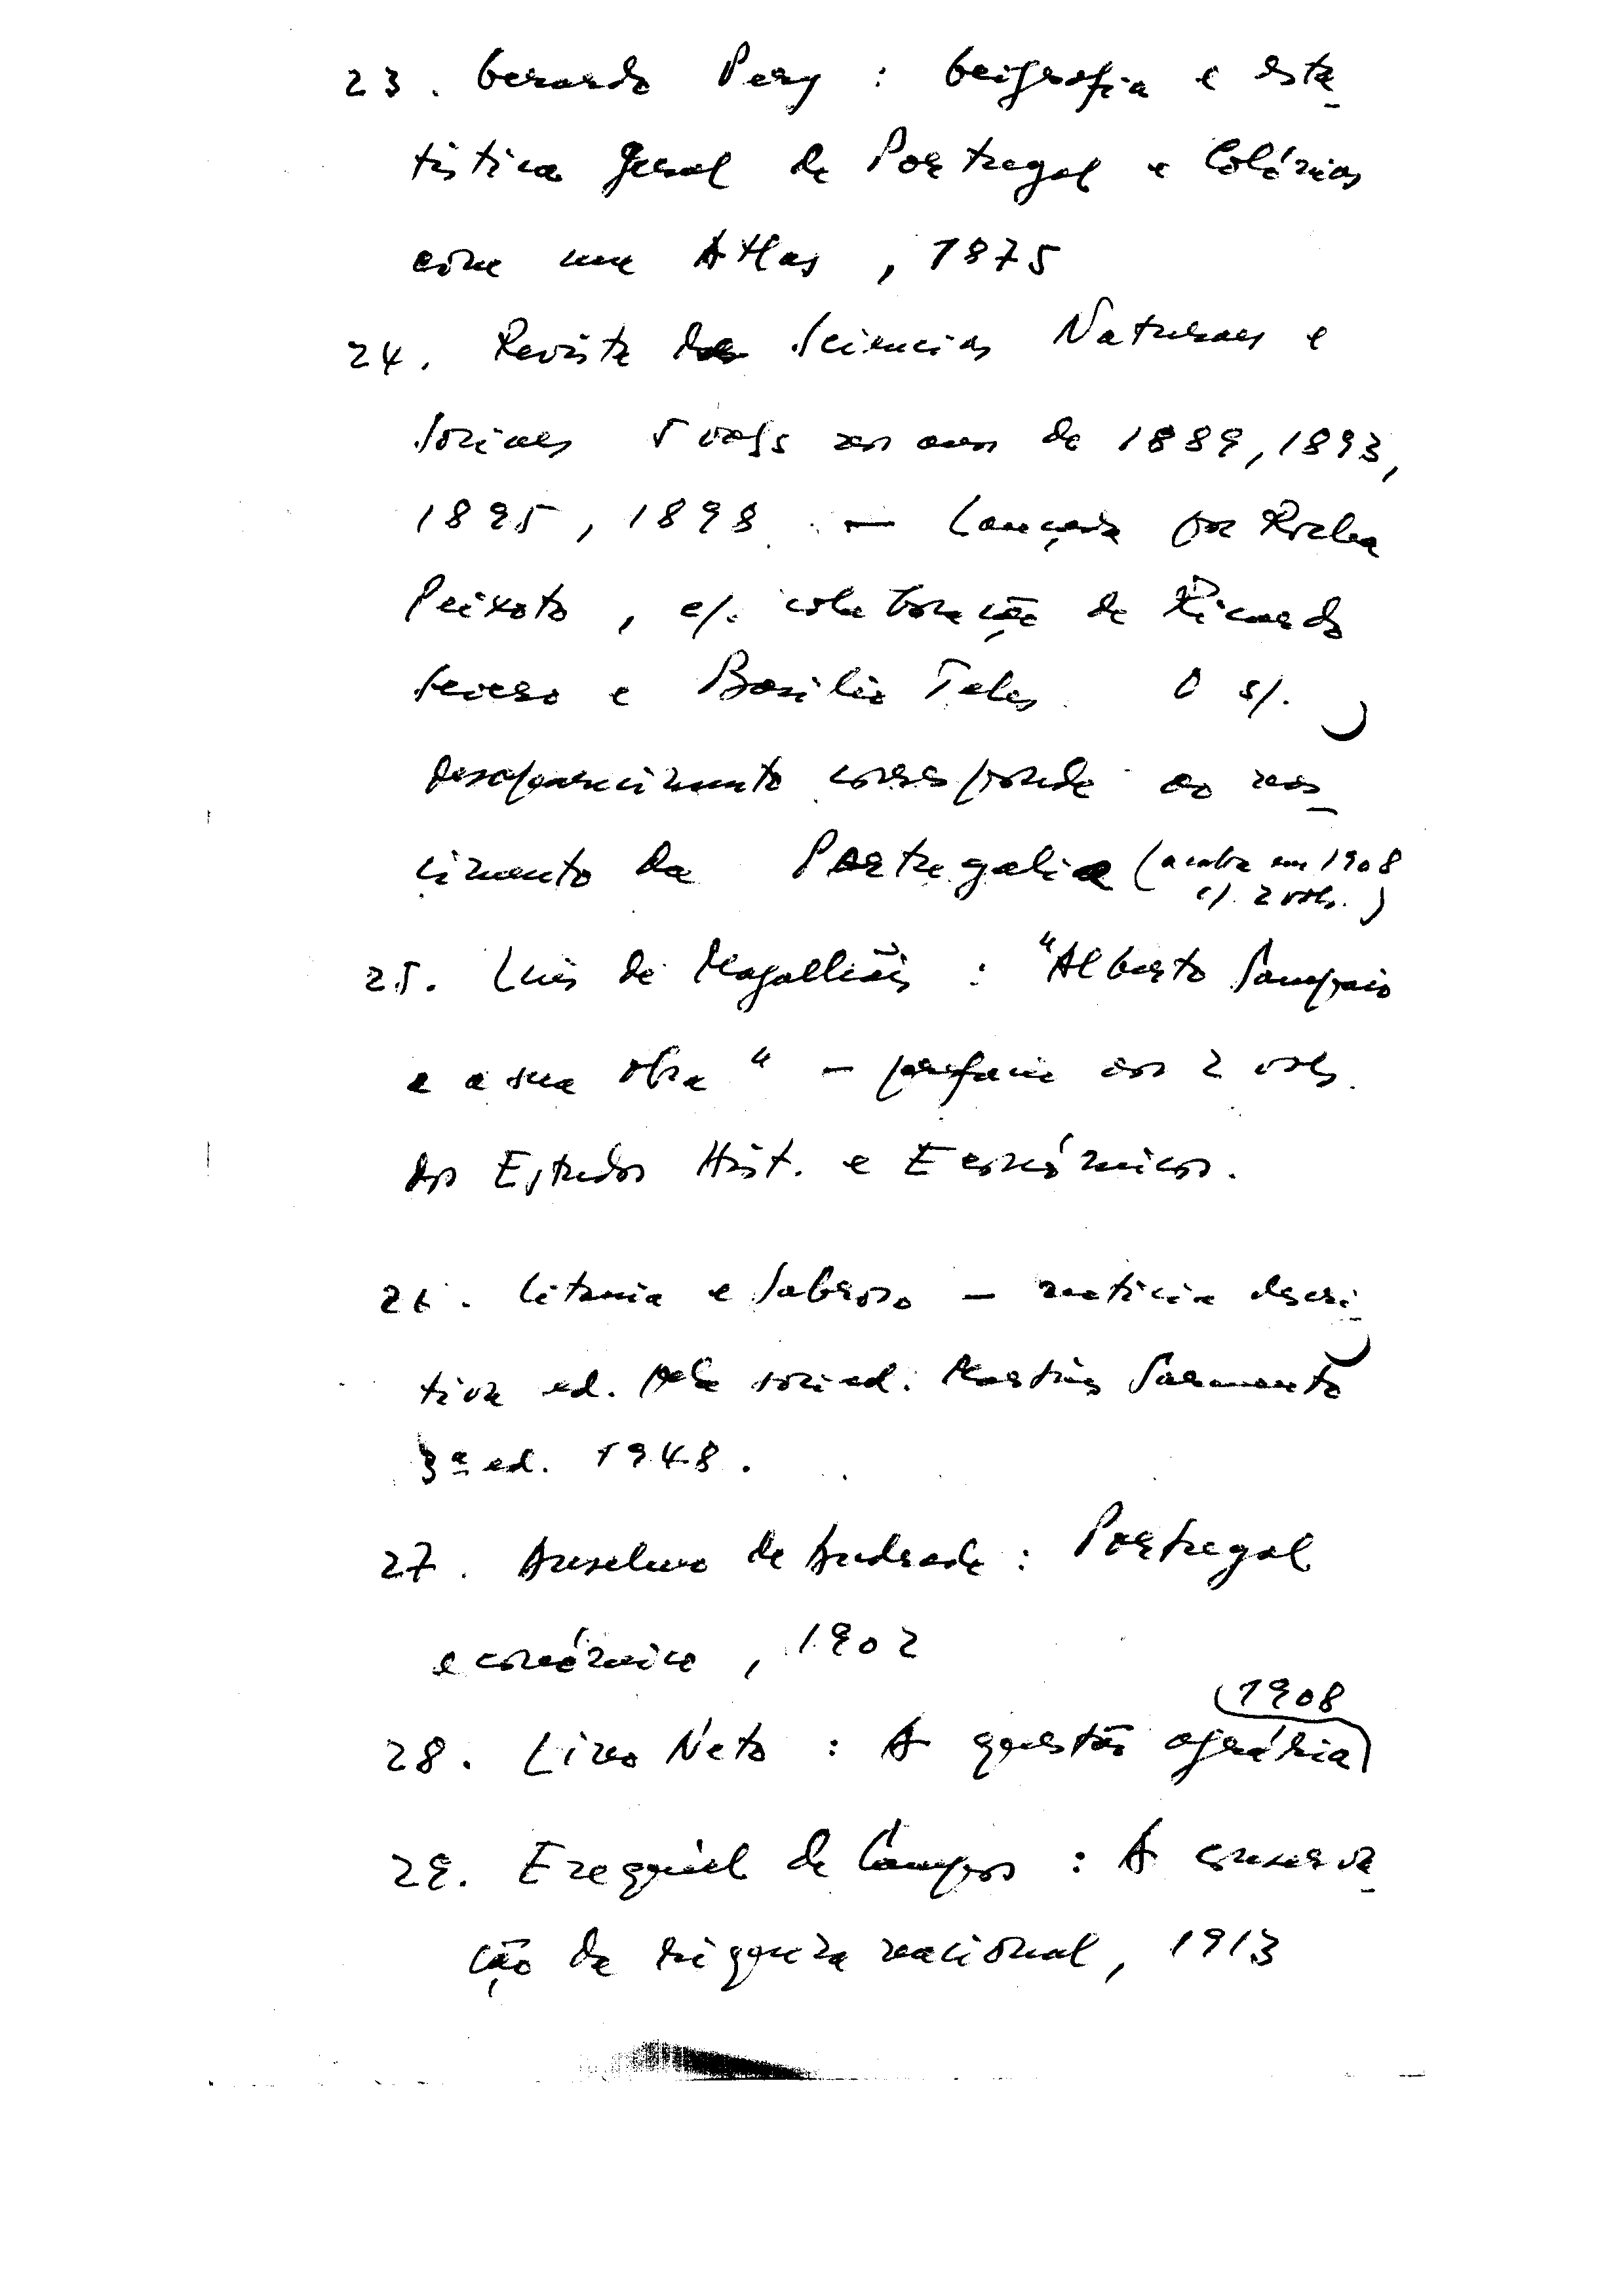 23. Gerardo Pery : Geografia e esta-
tistica geral de Portugal e Colónias
com um Atlas, 1875
24. Revista de Sciencias Naturaes e
Sociaes 5 vols nos anos de 1889, 1893,
1895, 1898. — Lançada por Rocha
Peixoto, c/. colaboração de Ricardo
Severo e Basílio Teles. O s/.
desaparecimento corresponde ao nas-
cimento da Portugalia (acaba em 1908
c/. 2 vols.)
25. Luís de Magalhães : "Alberto Sampaio
e a sua obra" - prefacio aos 2 vols.
dos Estudos Hist. e Económicos.
26. Citania e Sabroso - noticia descri-
tiva ed. pela socied. Martins Sarmento
3ª ed. 1948.
27. Anselmo de Andrade : Portugal
económico, 1902
28. Lino Neto : A questão agrária (1908)
29. Ezequiel de Campos : A conserva-
ção da riqueza nacional, 1913